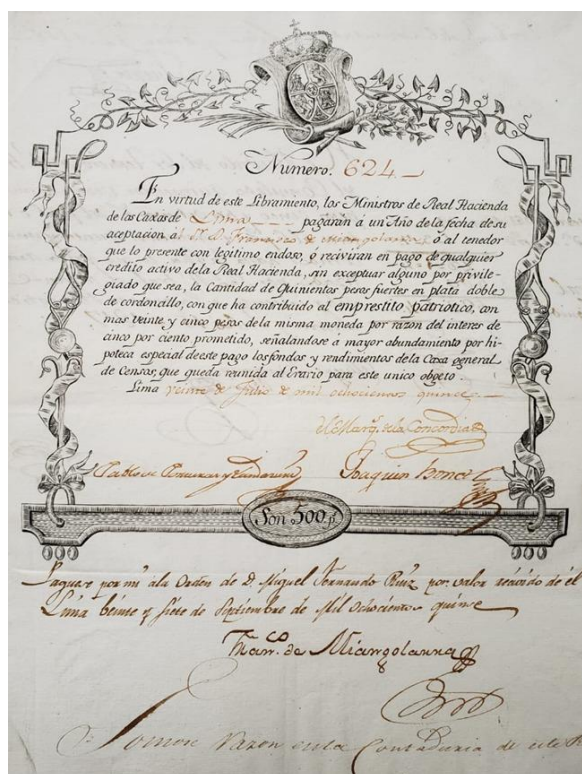 Numero. 624
En virtud de este Libramiento, los Ministros de Real Hacienda
de las Caxas de Lima pagarán á un Año de la fecha de su
aceptacion ál Sr. D. Francisco de Miangolarra ó al tenedor
que lo presente con legitimo endoso, ó reciviran en pago de qualquier
credito activo de la Real Hacienda, sin exceptuar alguno por privile-
giado que sea, la Cantidad de Quinientos pesos fuertes en plata doble
de cordoncillo, con que ha contribuido al emprestito patriótico, con
mas veinte y cinco pesos de la misma moneda por razon del interes de
cinco por ciento prometido, señalandose a mayor abundamiento por hi-
poteca especial de este pago los fondos y rendimientos de la Caxa general
de Censos, que queda reunida al Erario para este unico objeto.
Lima veinte de Julio de mil ochocientos quince.
El Marq. de la Concordia
Joaquin Bonet
Son 500 p.
Paguese por mi a la Orden de D. Miguel Fernando Ruiz por valor recivido de él
Lima beinte y siete de Septiembre de Mil Ochocientos quinse
Fran.co de Miangolarra
Tomose razon en la Contaduria de este